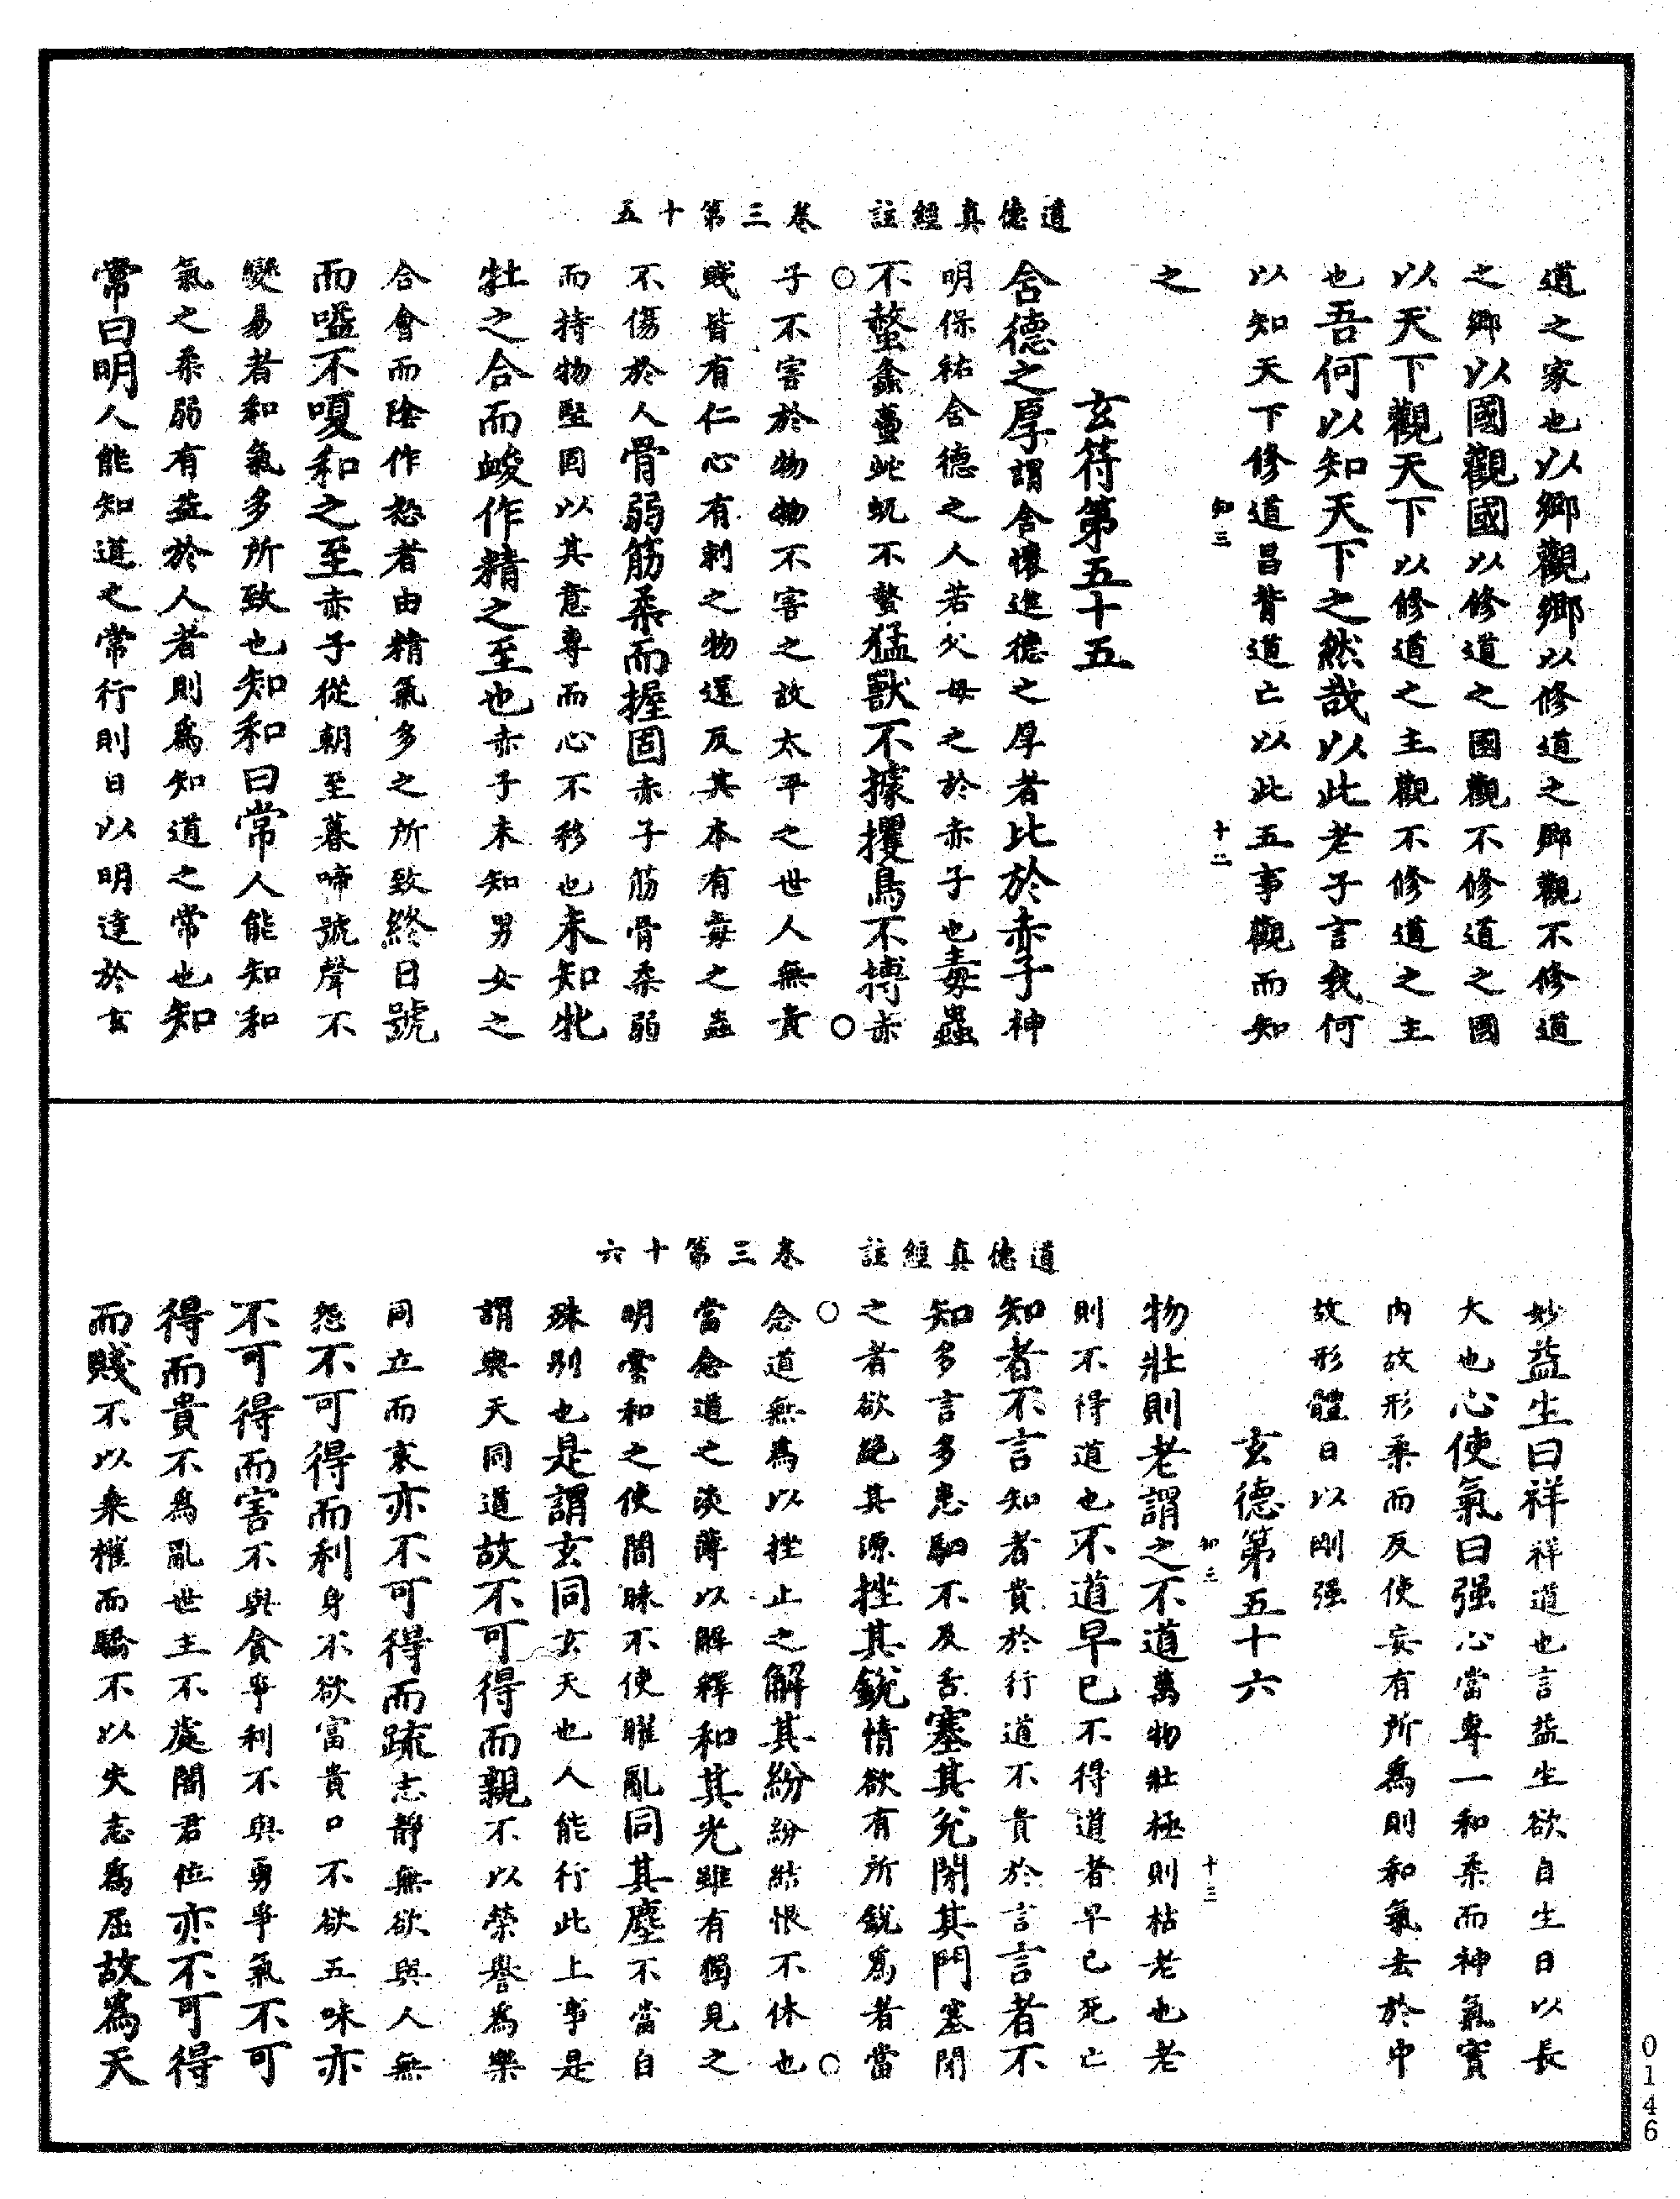 道德真經註 卷三第十五
道之家也以鄉觀鄉以修道之鄉觀不修道
之鄉以國觀國以修道之國觀不修道之國
以天下觀天下以修道之主觀不修道之主
也吾何以知天下之然哉以此老子言我何
以知天下修道昌背道亡以此五事觀而知
知三 十二
之
玄符第五十五
含德之厚謂含懷進德之厚者比於赤子神
明保祐含德之人若父母之於赤子也毒蟲
不螫螽蠆虵虺不螫猛獸不據攫鳥不搏赤
子不害於物物不害之故太平之世人無貴
賤皆有仁心有刺之物還反其本有毒之蟲
不傷於人骨弱筋柔而握固赤子筋骨柔弱
而持物堅固以其意專而心不移也未知牝
牡之合而峻作精之至也赤子未知男女之
合會而陰作怒者由精氣多之所致終日號
而嗌不嗄和之至赤子從朝至暮啼號聲不
變易者和氣多所致也知和曰常人能知和
氣之柔弱有益於人者則為知道之常也知
常曰明人能知道之常行則日以明達於玄
道德真經註 卷三第十六
妙益生曰祥祥道也言益生欲自生日以長
大也心使氣曰强心當專一和柔而神氣實
內故形柔而反使妄有所為則和氣去於中
故形體日以剛强
玄德第五十六
知三 十三
物壯則老謂之不道萬物壯極則枯老也老
則不得道也不道早已不得道者早已死亡
知者不言知者貴於行道不貴於言言者不
知多言多患駟不及舌塞其兌閉其門塞閉
之者欲絕其源挫其銳情欲有所銳為者當
念道無為以挫止之解其紛紛結恨不休也
當念道之淡薄以解釋和其光雖有獨見之
明當和之使闇昧不使曜亂同其塵不當自
殊别也是謂玄同玄天也人能行此上事是
謂與天同道故不可得而親不以榮譽為樂
同立而哀亦不可得而疏志靜無欲與人無
怨不可得而利身不欲富貴口不欲五味亦
不可得而害不與貪爭利不與勇爭氣不可
得而貴不為亂世主不處闇君位亦不可得
而賤不以乘權而驕不以失志為屈故為天
0146